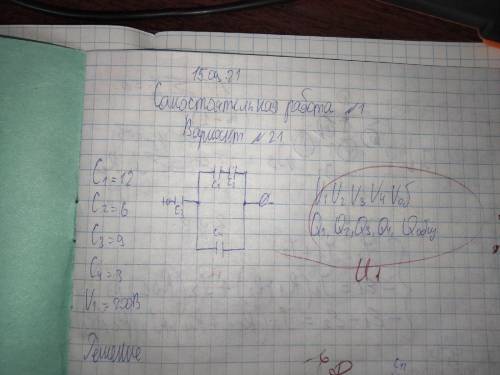 Самостоятельная работа №1
Вариант №21
C1=12
C2=6
C3=9
C4=3
U1=200В
C3
V1 V2 V3 V4 Vоб
Q1, Q2, Q3, Q4, Qобщ
U1
Решение